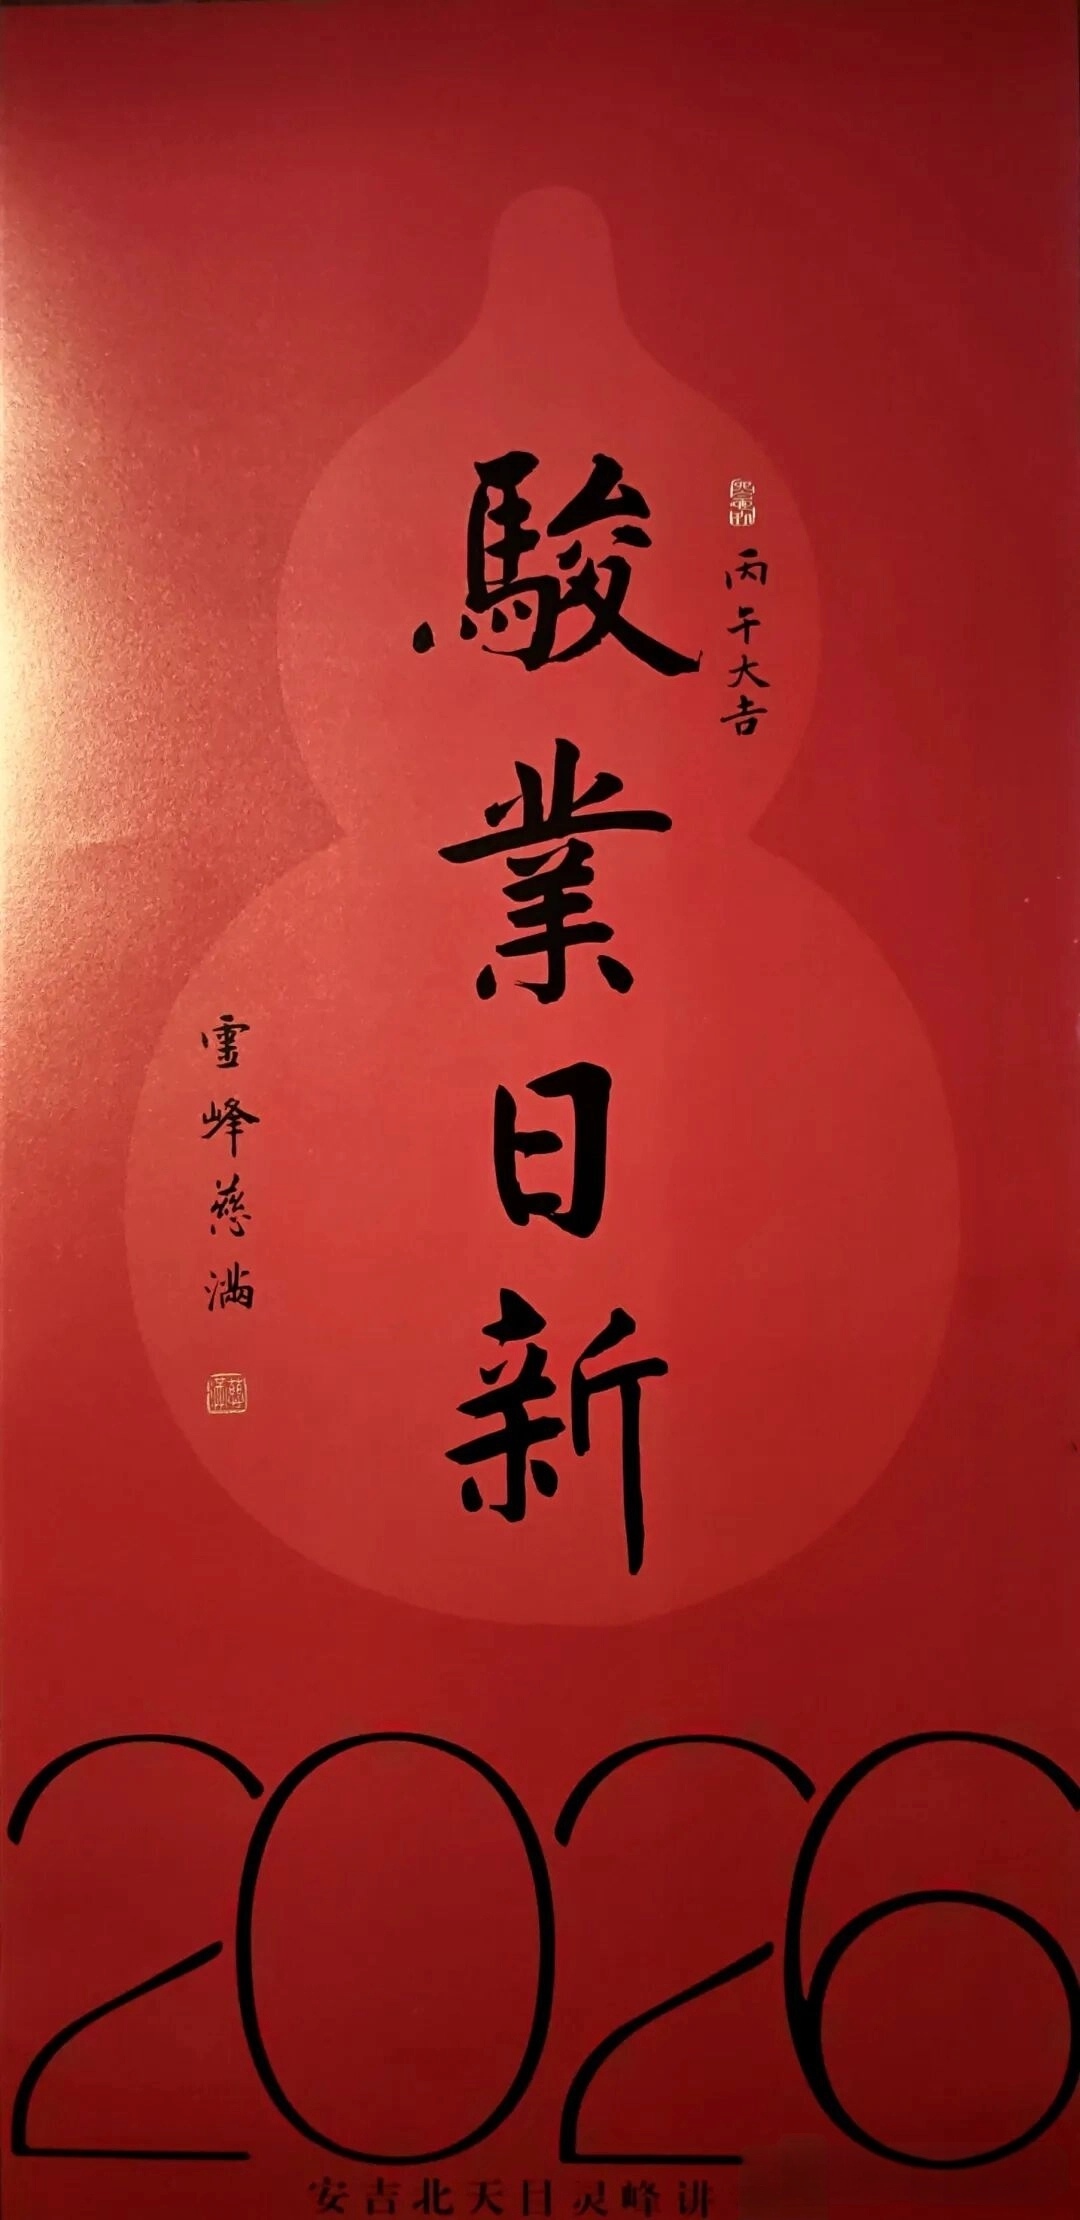 丙午大吉
駿業日新
霊峰慈滿
2026
安吉北天目灵峰讲